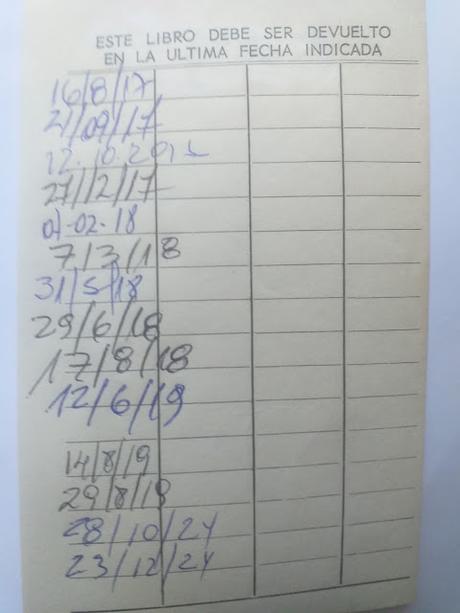 ESTE LIBRO DEBE SER DEVUELTO
EN LA ULTIMA FECHA INDICADA
16/8/17
21/09/17
12.10.201
27/12/17
01-02-18
7/3/18
31/5/18
29/6/18
17/8/18
12/6/19
14/8/19
29/8/19
28/10/24
23/12/24